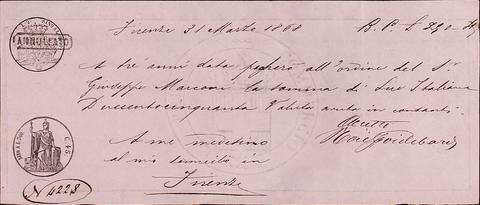 ANNULLATO
Firenze 31 Marzo 1868 B. P. £ 250
A tre anni data pagherò all'ordine del Sr
Giuseppe Marconi la somma di Lire Italiane
Duecentocinquanta Valuta avuta in contanti
Accetto
A me medesimo
al mio domicilio in
Firenze
C. 45
N 4228